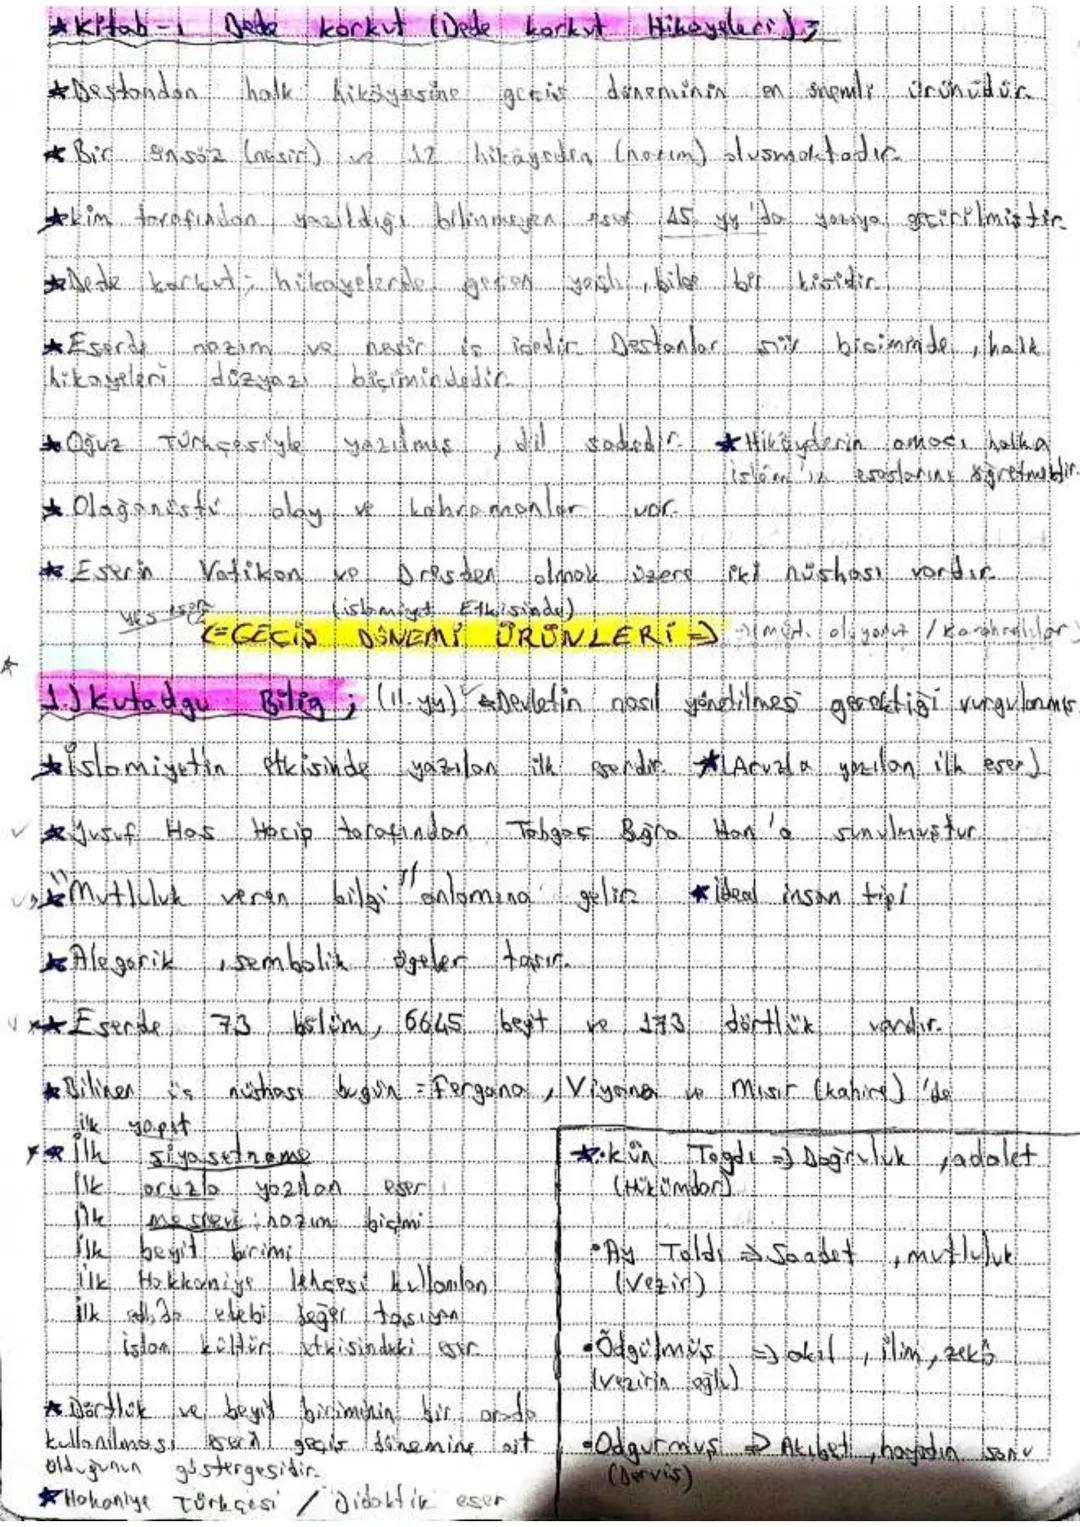 ★Kitab-ı Dede Korkut (Dede Korkut Hikayeleri);
★Destandan halk hikâyesine geçiş döneminin en önemli ürünüdür.
★Bir önsöz (nesir) ve 12 hikâyeden (nazım) oluşmaktadır.
★Kim tarafından yazıldığı bilinmeyen eser 15. yy'da yazıya geçirilmiştir.
★Dede Korkut; hikayelerde geçen yaşlı, bilge bir kişidir.
★Eserde nazım ve nesir iç içedir. Destanlar şiir biçiminde, halk
hikayeleri düzyazı biçimindedir.
★Oğuz Türkçesiyle yazılmış, dil sadedir. ★Hikâyelerin amacı halka
İslâm'ın esaslarını öğretmektir.
★Olağanüstü olay ve kahramanlar var.
★Eserin Vatikan ve Dresden olmak üzere iki nüshası vardır.
(İslamiyet Etkisinde)
(=GEÇİŞ DÖNEMİ ÜRÜNLERİ=)
1.) Kutadgu Bilig; (11. yy) ★Devletin nasıl yönetilmesi gerektiği vurgulanmış
★İslamiyetin etkisinde yazılan ilk eserdir. ★(Aruzla yazılan ilk eser)
★Yusuf Has Hacip tarafından Tabgaç Buğra Han'a sunulmuştur.
★"Mutluluk veren bilgi" anlamına gelir. ★ideal insan tipi
★Alegorik, sembolik ögeler taşır.
★Eserde 73 bölüm, 6645 beyit ve 173 dörtlük vardır.
★Bilinen üç nüshası bugün = Fergana, Viyana ve Mısır (Kahire)'de
ilk yapıt
★ilk siyasetname
ilk aruzla yazılan eser
ilk mesnevi; nazım biçimi
ilk beyit birimi
ilk Hakkaniye lehçesi kullanılan
ilk edebi değer taşıyan
islam kültür etkisindeki eser
★Dörtlük ve beyit biriminin bir arada
kullanılması eserin geçiş dönemine ait
olduğunun göstergesidir.
★Hakaniye Türkçesi / Didaktik eser
★•Kün Togdı => Doğruluk, adalet
(Hükümdar)
•Ay Toldı => Saadet, mutluluk
(Vezir)
•Ödgülmüş => akıl, ilim, zekâ
(vezirin oğlu)
•Odgurmuş => Akıbet, hayatın sonu
(Derviş)